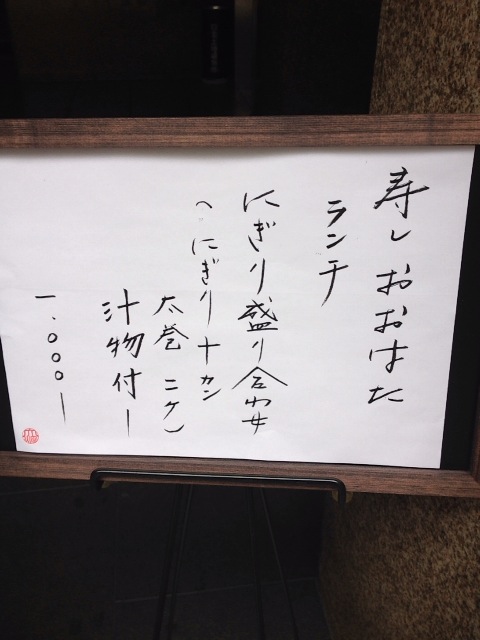 寿し おおはた
ランチ
にぎり盛り合わせ
(にぎり十カン
太巻 二ケ)
汁物付ー
一、〇〇〇ー